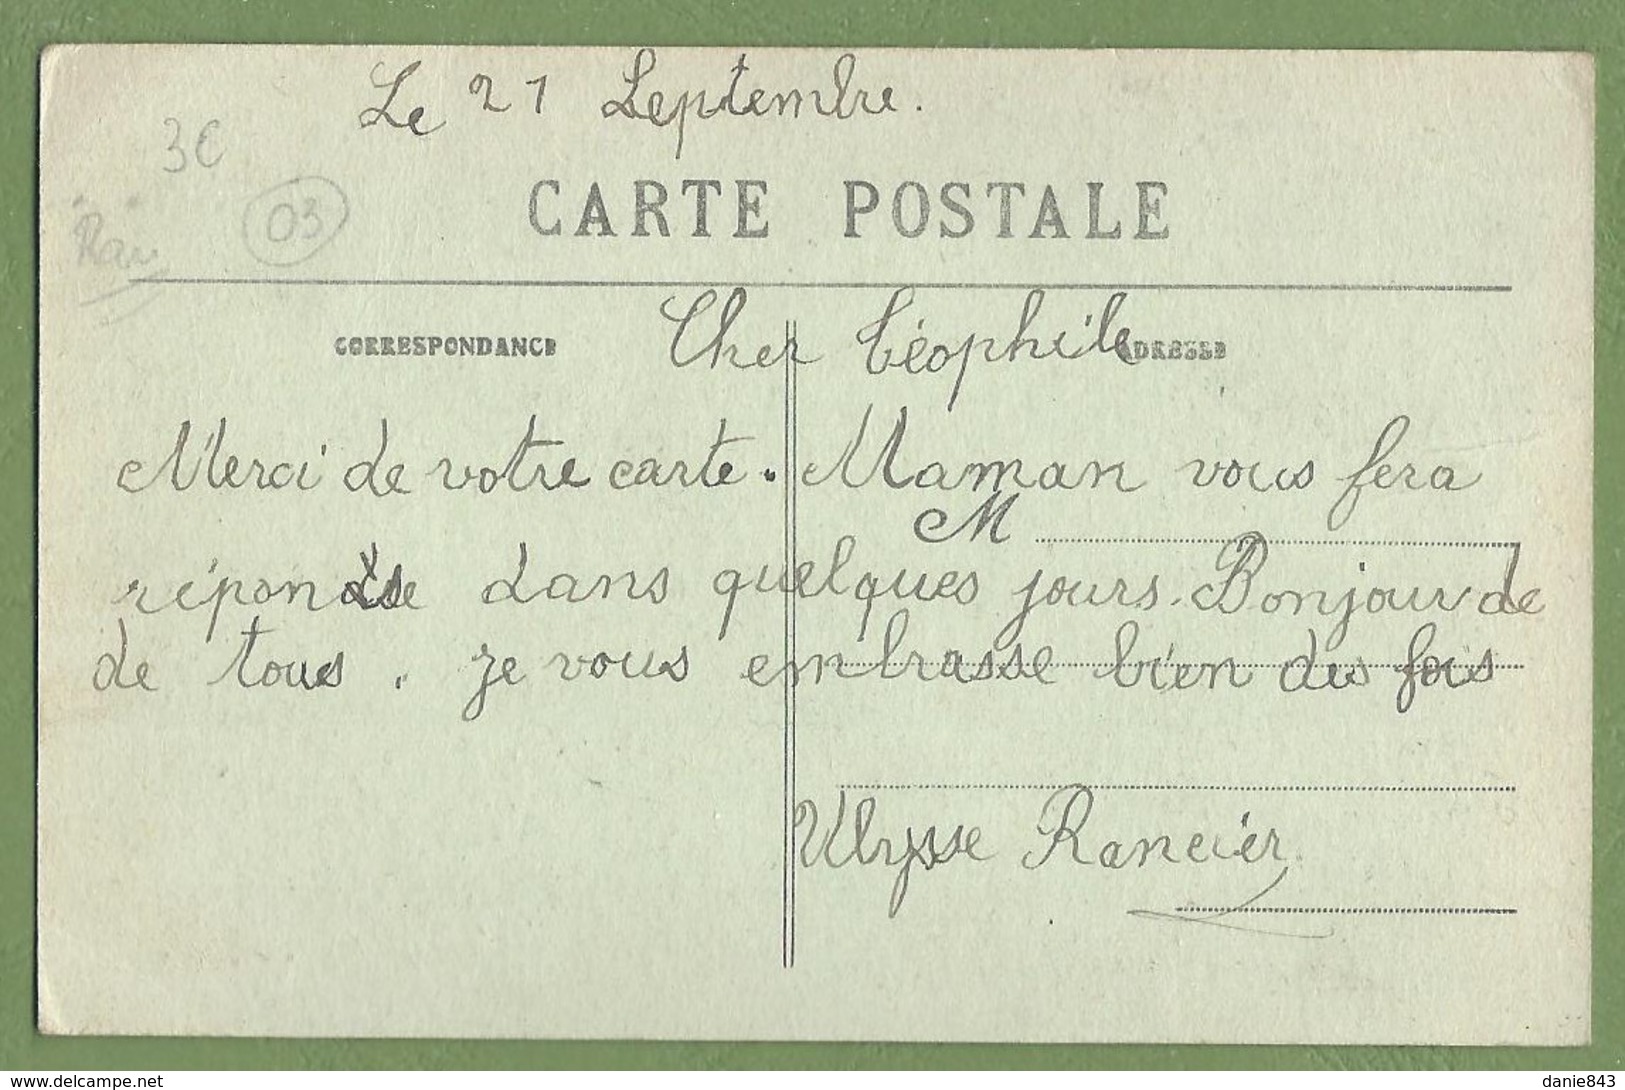 Le 21 Septembre.
3€
03
CARTE POSTALE
CORRESPONDANCE
ADRESSE
Cher Téopheile
Merci de votre carte. Maman vous fera
M
réponse dans quelques jours. Bonjour de
de tous. Je vous embrasse bien des fois
Ulysse Rancier
danie843